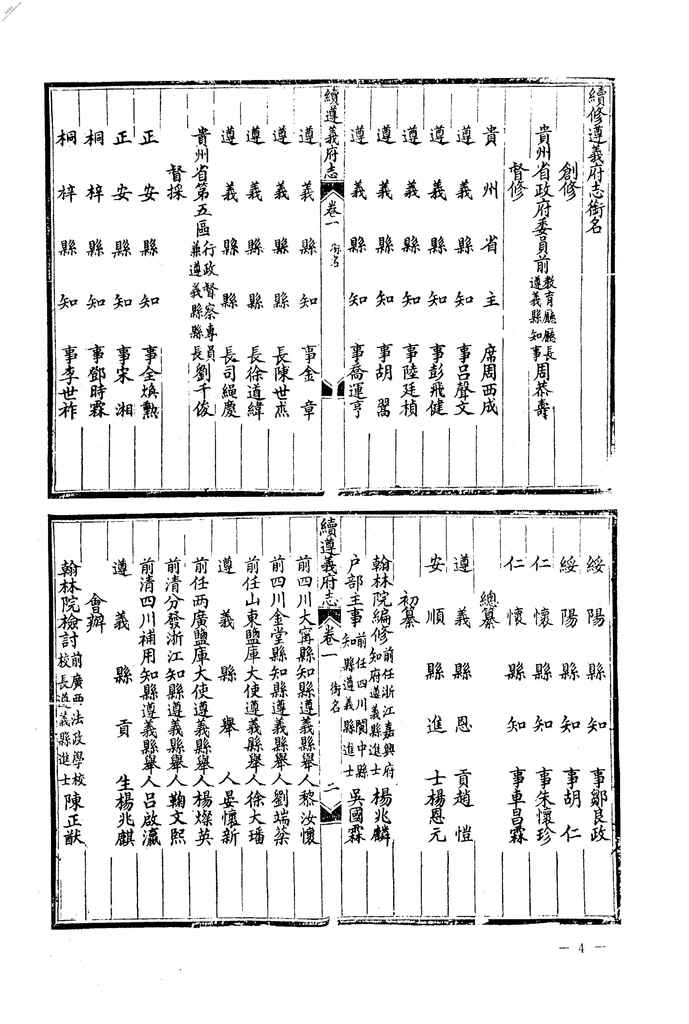 續修遵義府志銜名
創修
貴州省政府委員前教育廳廳長遵義縣知事周恭壽
督修
貴州省主席周西成
遵義縣知事呂聲文
遵義縣知事彭飛健
遵義縣知事陸廷楨
遵義縣知事胡翯
遵義縣知事喬運亨
續遵義府志 卷一 銜名
遵義縣知事金章
遵義縣縣長陳世燾
遵義縣縣長徐道緯
遵義縣縣長司繩慶
貴州省第五區行政督察專員兼遵義縣縣長劉千俊
督採
正安縣知事全煥勲
正安縣知事宋湘
桐梓縣知事鄧時霖
桐梓縣知事李世祚
綏陽縣知事鄒良政
綏陽縣知事胡仁
仁懷縣知事朱懷珍
仁懷縣知事車昌霖
總纂
遵義縣恩貢趙愷
安順縣進士楊恩元
初纂
翰林院編修前任浙江嘉興府知府遵義縣進士楊兆麟
户部主事前任四川閬中縣知縣遵義縣進士吳國霖
續遵義府志 卷一 銜名 二
前四川大甯縣知縣遵義縣舉人黎汝懷
前四川金堂縣知縣遵義縣舉人劉端棻
前任山東鹽庫大使遵義縣舉人徐大璠
遵義縣舉人晏懷新
前任西廣鹽庫大使遵義縣舉人楊燦英
前清分發浙江知縣遵義縣舉人鞠文熙
前清四川補用知縣遵義縣舉人呂啟瀛
遵義縣貢生楊兆麒
會辦
翰林院檢討前廣西法政學校校長遵義縣進士陳正猷
— 4 —